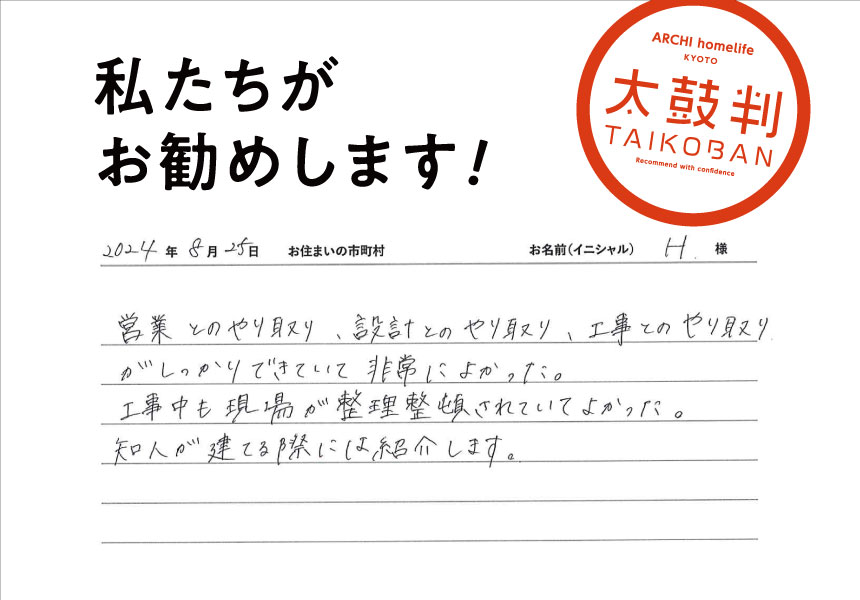 私たちが
お勧めします!
ARCHI homelife
KYOTO
太鼓判
TAIKOBAN
Recommend with confidence
2024年8月25日 お住まいの市町村 お名前(イニシャル) H. 様
営業とのやり取り、設計とのやり取り、工事とのやり取り
がしっかりできていて非常によかった。
工事中も現場が整理整頓されていてよかった。
知人が建てる際には紹介します。